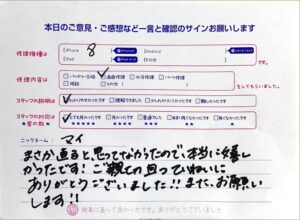 本日のご意見・ご感想など一言と確認のサインお願いします
修理機種は
iPhone 8
Android
iPad
です。
修理内容は
バッテリー交換 画面修理 水没修理 パーツ修理
をしてもらいました。
スタッフの説明は
わかりやすかったです 理解できました 少しわかりにくかったです 難しかったです
スタッフの対応は
★星の数★
とても良かったです 良かったです 普通でした
ニックネーム: マイ
まさか直ると思ってなかったので、本当に嬉し
かったです!ご親切ていねいに
ありがとうございました!!また、お願い
します!!
無事に直って良かったです。ありがとうございました